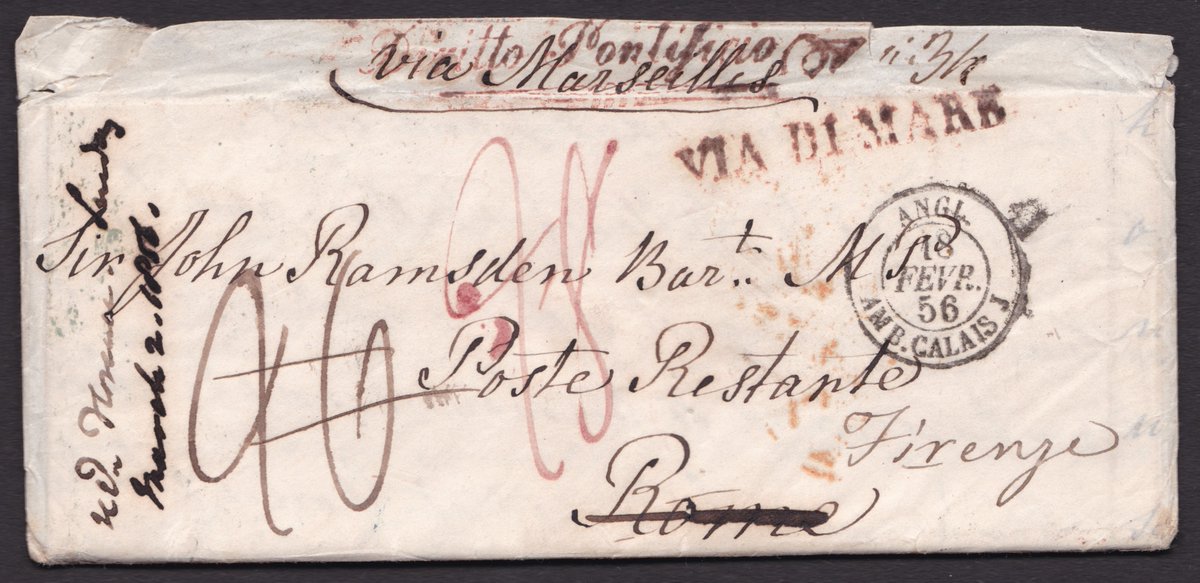 Diritto Pontificio
via Marseilles
VIA DI MARE
ANGL.
18
FEVR.
56
AMB. CALAIS J
Sir John Ramsden Bart. M P
Poste Restante
Firenze
Rome
March 2. 1856.